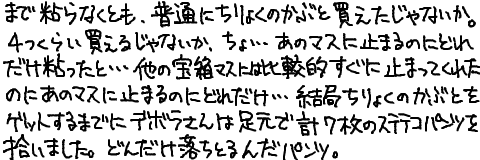 まで粘らなくとも、普通にちりょくのかぶと買えたじゃないか。
4つくらい買えるじゃないか、ちょ…あのマスに止まるのにどれ
だけ粘ったと…他の宝箱マスには比較的すぐに止まってくれた
のにあのマスに止まるのにどれだけ…結局ちりょくのかぶとを
ゲットするまでにデボラさんは足元で計7枚のステテコパンツを
拾いました。どんだけ落ちとるんだパンツ。